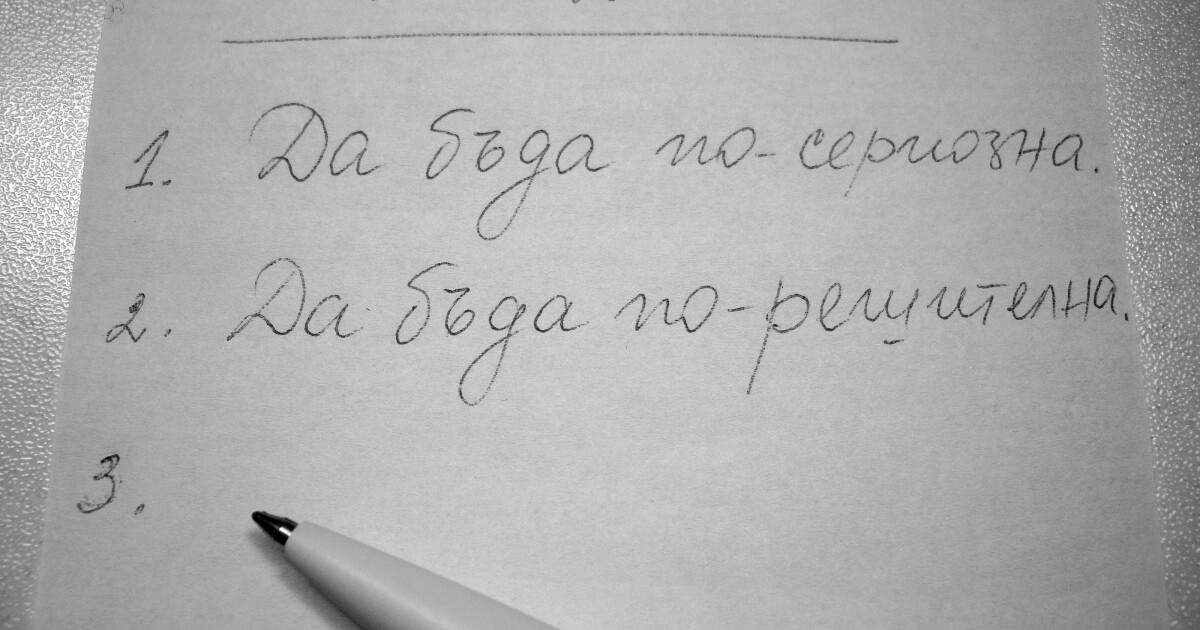 1. Да бъда по-сериозна.
2. Да бъда по-решителна.
3.